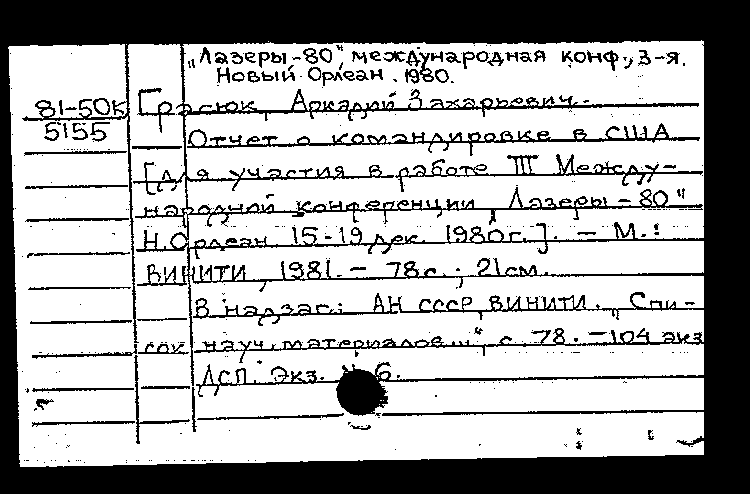 „Лазеры-80", международная конф., 3-я.
Новый Орлеан. 1980.
81-50к
5155
Грасюк, Аркадий Захарьевич.
Отчет о командировке в США
[для участия в работе III Между-
народной конференции „Лазеры-80"
Н.Орлеан 15-19 дек. 1980г.]. - М.:
ВИНИТИ, 1981. - 78с.; 21см.
В надзаг.: АН СССР, ВИНИТИ. „Спи-
сок науч. материалов...", с. 78. - 104 экз
ДСП. Экз. № 6.